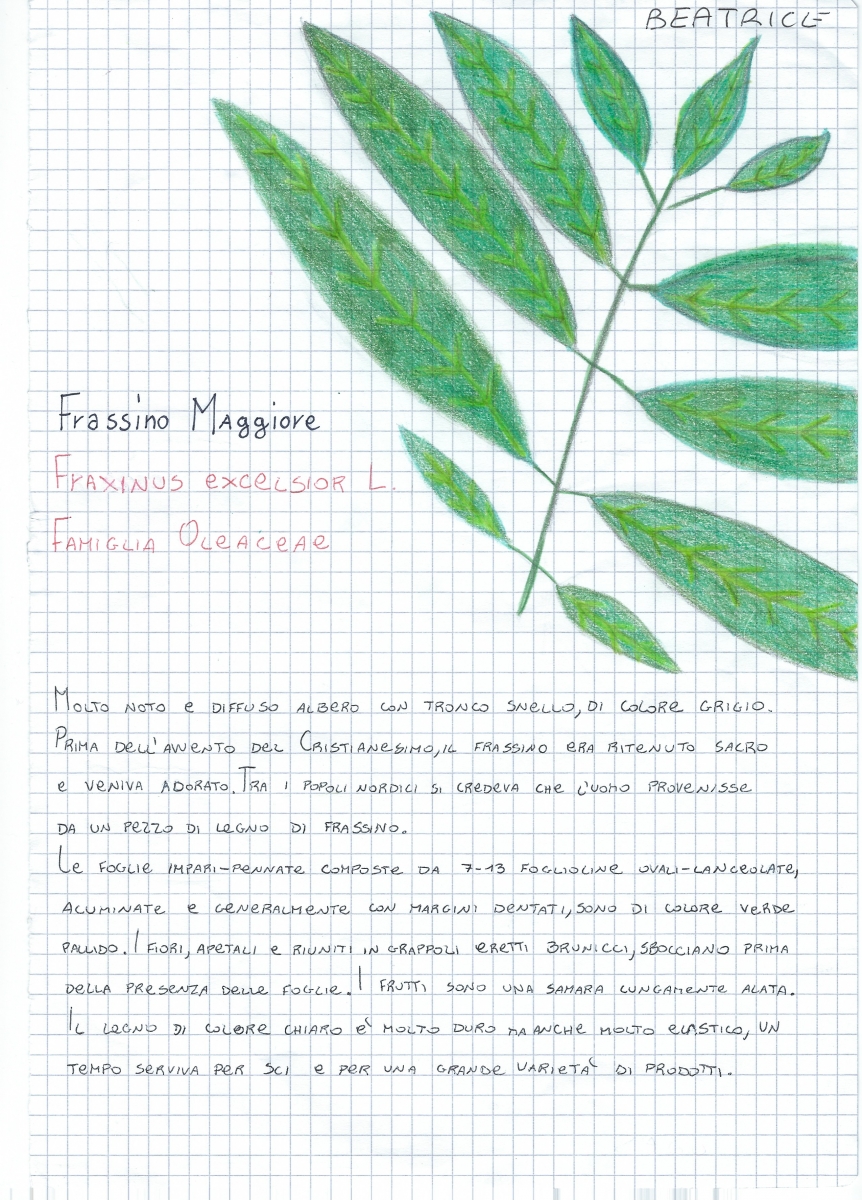 BEATRICE
Frassino Maggiore
Fraxinus excelsior L.
Famiglia Oleaceae
Molto noto e diffuso albero con tronco snello, di colore grigio.
Prima dell'avvento del Cristianesimo, il frassino era ritenuto sacro
e veniva adorato. Tra i popoli nordici si credeva che l'uomo provenisse
da un pezzo di legno di frassino.
Le foglie impari-pennate composte da 7-13 foglioline ovali-lanceolate,
acuminate e generalmente con margini dentati, sono di colore verde
pallido. I fiori, apetali e riuniti in grappoli eretti brunicci, sbocciano prima
della presenza delle foglie. I frutti sono una samara lungamente alata.
Il legno di colore chiaro è molto duro ma anche molto elastico, un
tempo serviva per sci e per una grande varietà di prodotti.